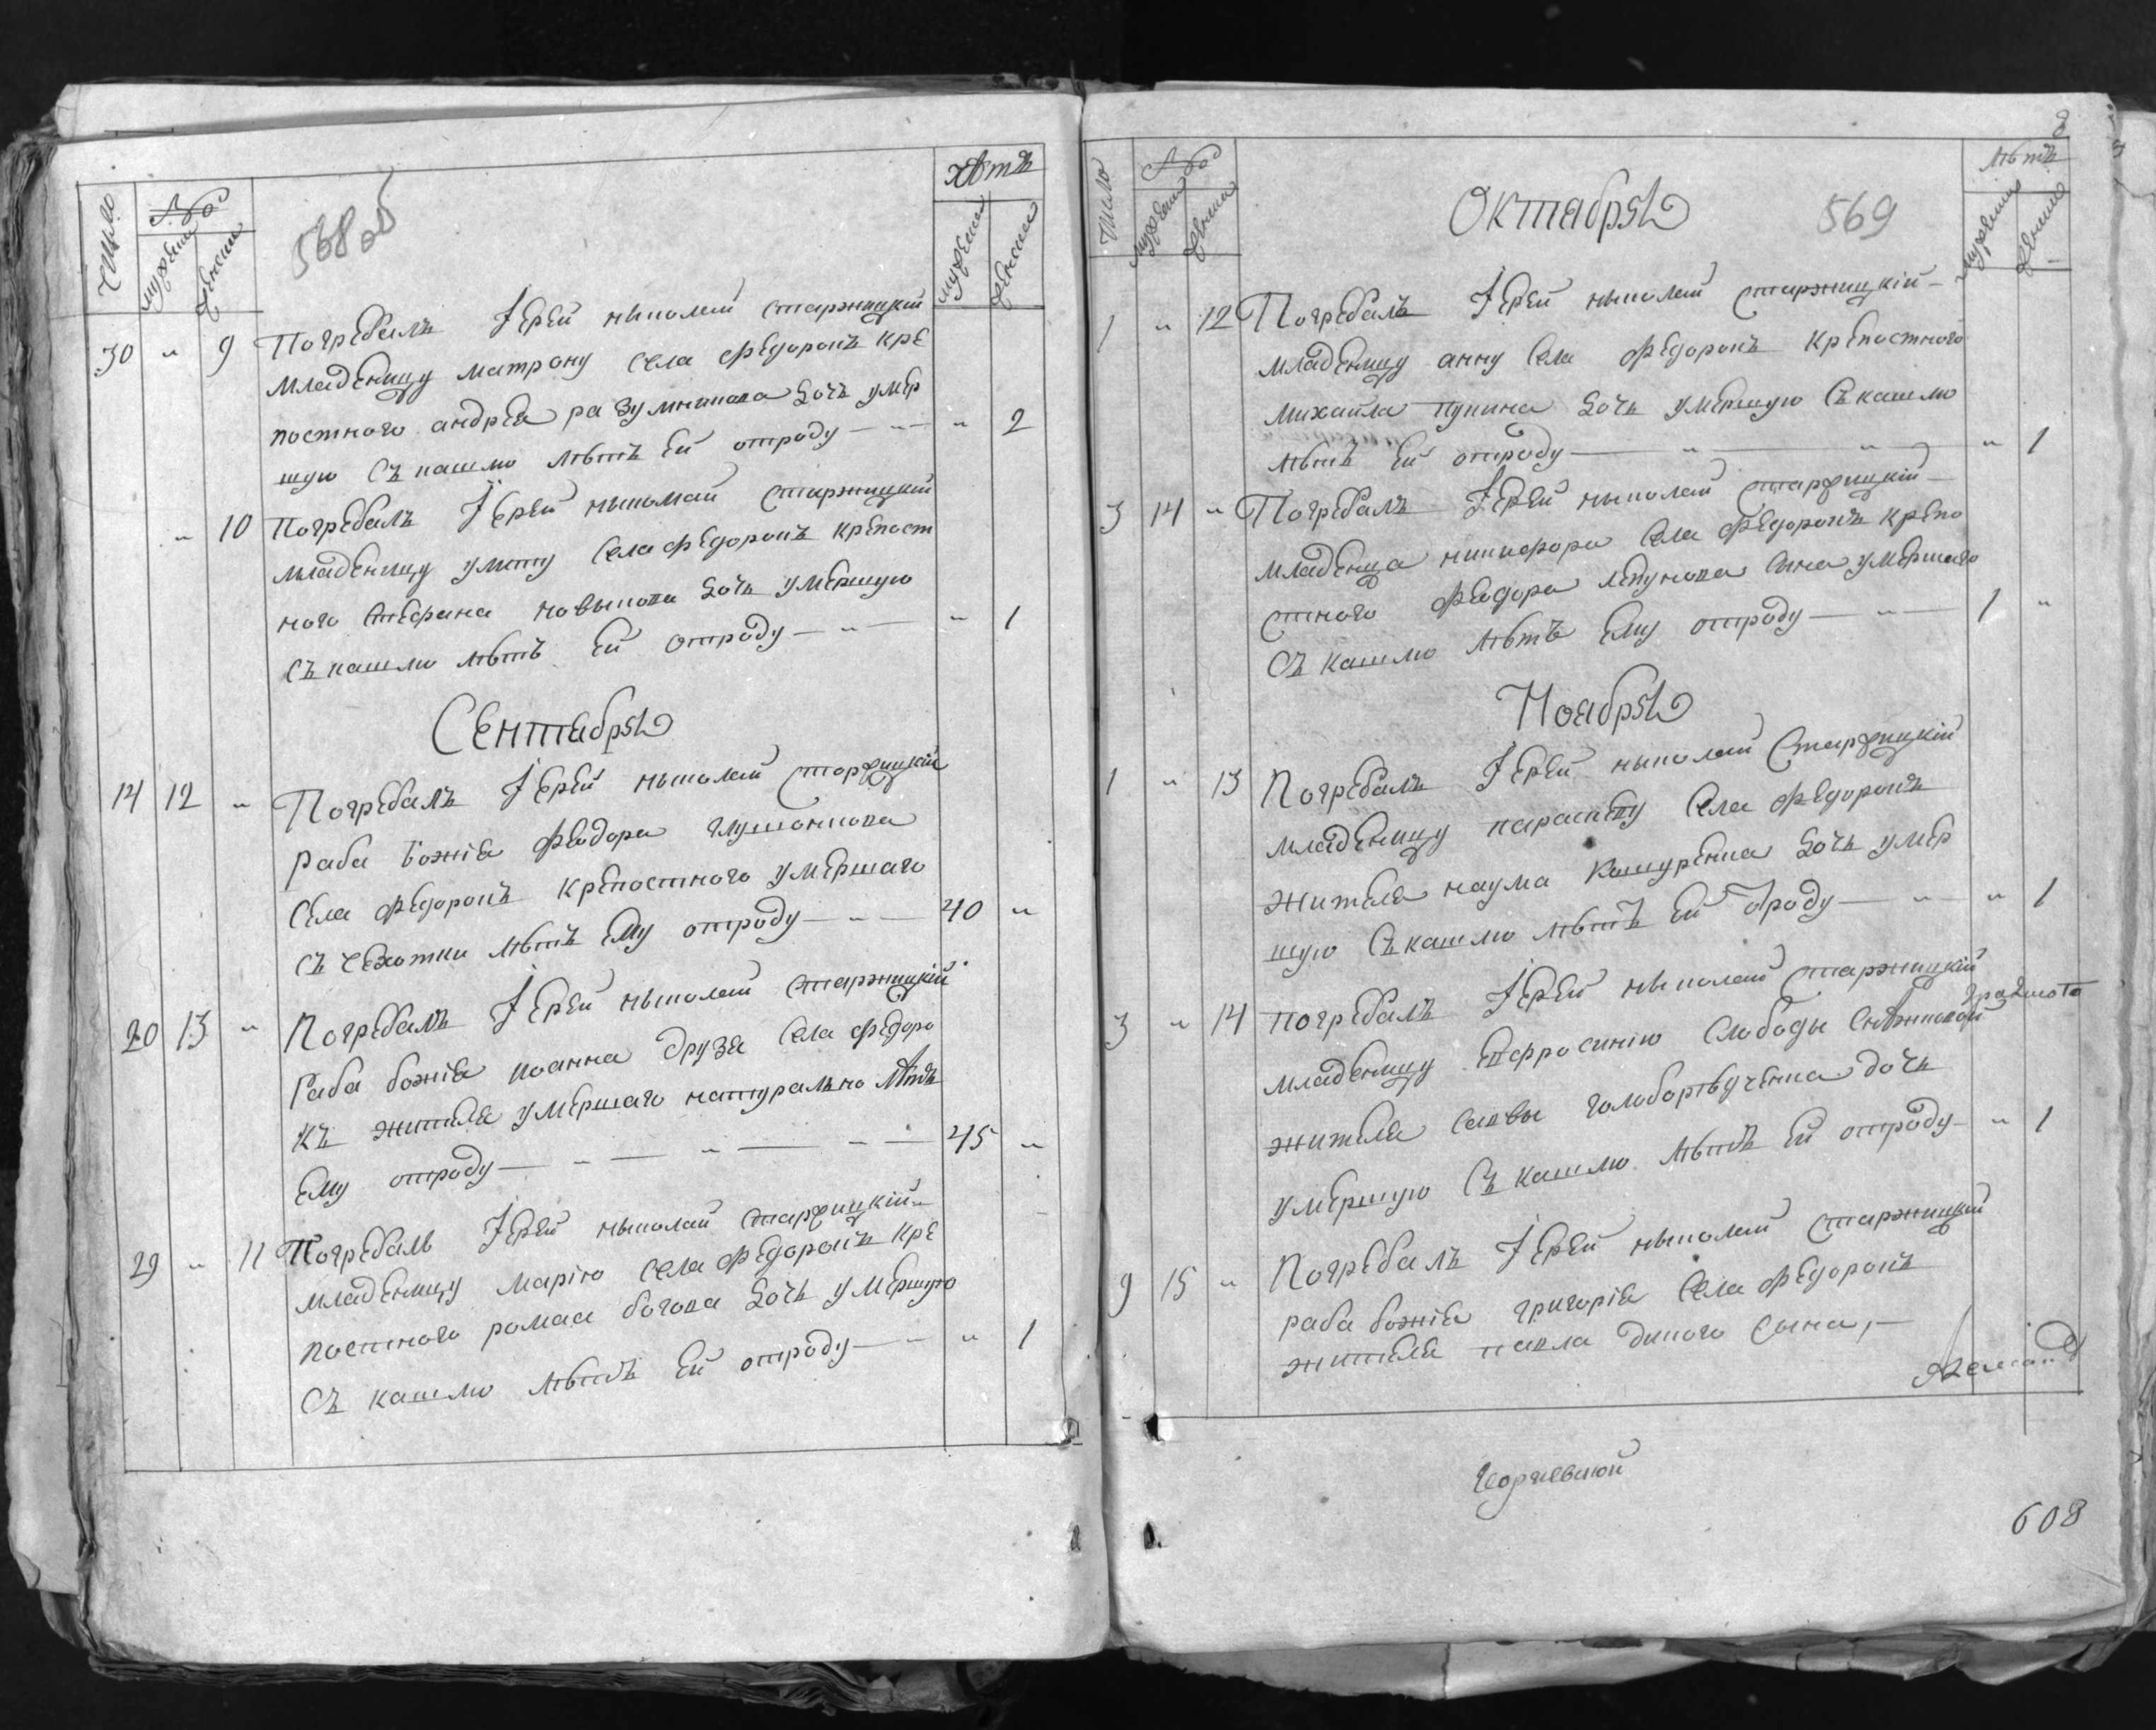 число
№
мужеска
женска
568 об
лѣтъ
мужеска
женска
30 " 9 Погребалъ Іерей николай старжицкий
младеницу матрону села федоровъ кре
постного андрея разумникова дочь умер
шую съ кашлю лѣтъ ей отроду — " 2
" 10 погребалъ Іерей николай старжицкий
младеницу улиту села федоровъ крепост
ного стефана новыкова дочь умершую
съ кашлю лѣтъ ей отроду — " — " 1
Сентября
14 12 " Погребалъ Іерей николай старжицкій
раба божія феодора
села федоровъ крепостного умершаго
съ чехотки лѣтъ ему отроду — " — 40 "
20 13 " Погребалъ Іерей николай старжицкій
Раба божія иоанна друзя села федоро
въ жителя умершаго натурально лѣтъ
ему отроду — " — " — " — 45 "
29 " 11 Погребалъ Іерей николай старжицкій
младеницу марію села федоровъ кре
постного романа богова дочь умершую
съ кашлю лѣтъ ей отроду — " — " 1
8
число
№
мужеска
женска
Октября
569
лѣтъ
мужеска
женска
1 " 12 Погребалъ Іерей николай старжицкій
младеницу анну села федоровъ крепостного
михаила пупина дочь умершую съ кашлю
лѣтъ ей отроду — " — " — " 1
3 14 " Погребалъ Іерей николай старжицкій
младенца никифора села федоровъ крепо
стного феодора сина умершаго
съ кашлю лѣтъ ему отроду — " — 1 "
Ноября
1 " 13 Погребалъ Іерей николай Старжицкій
младеницу параскеву села федоровъ
жителя наума кошуренка дочь умер
шую съ кашлю лѣтъ ей отроду — " — " 1
3 " 14 погребалъ Іерей николай старжицкій
младеницу евфросинію слободы снѣжковой
жителя саввы голобородченка дочь
умершую съ кашлю лѣтъ ей отроду — " 1
9 15 " Погребалъ Іерей николай старжицкий
раба божія григорія села федоровъ
жителя павла дикого сына, —
608